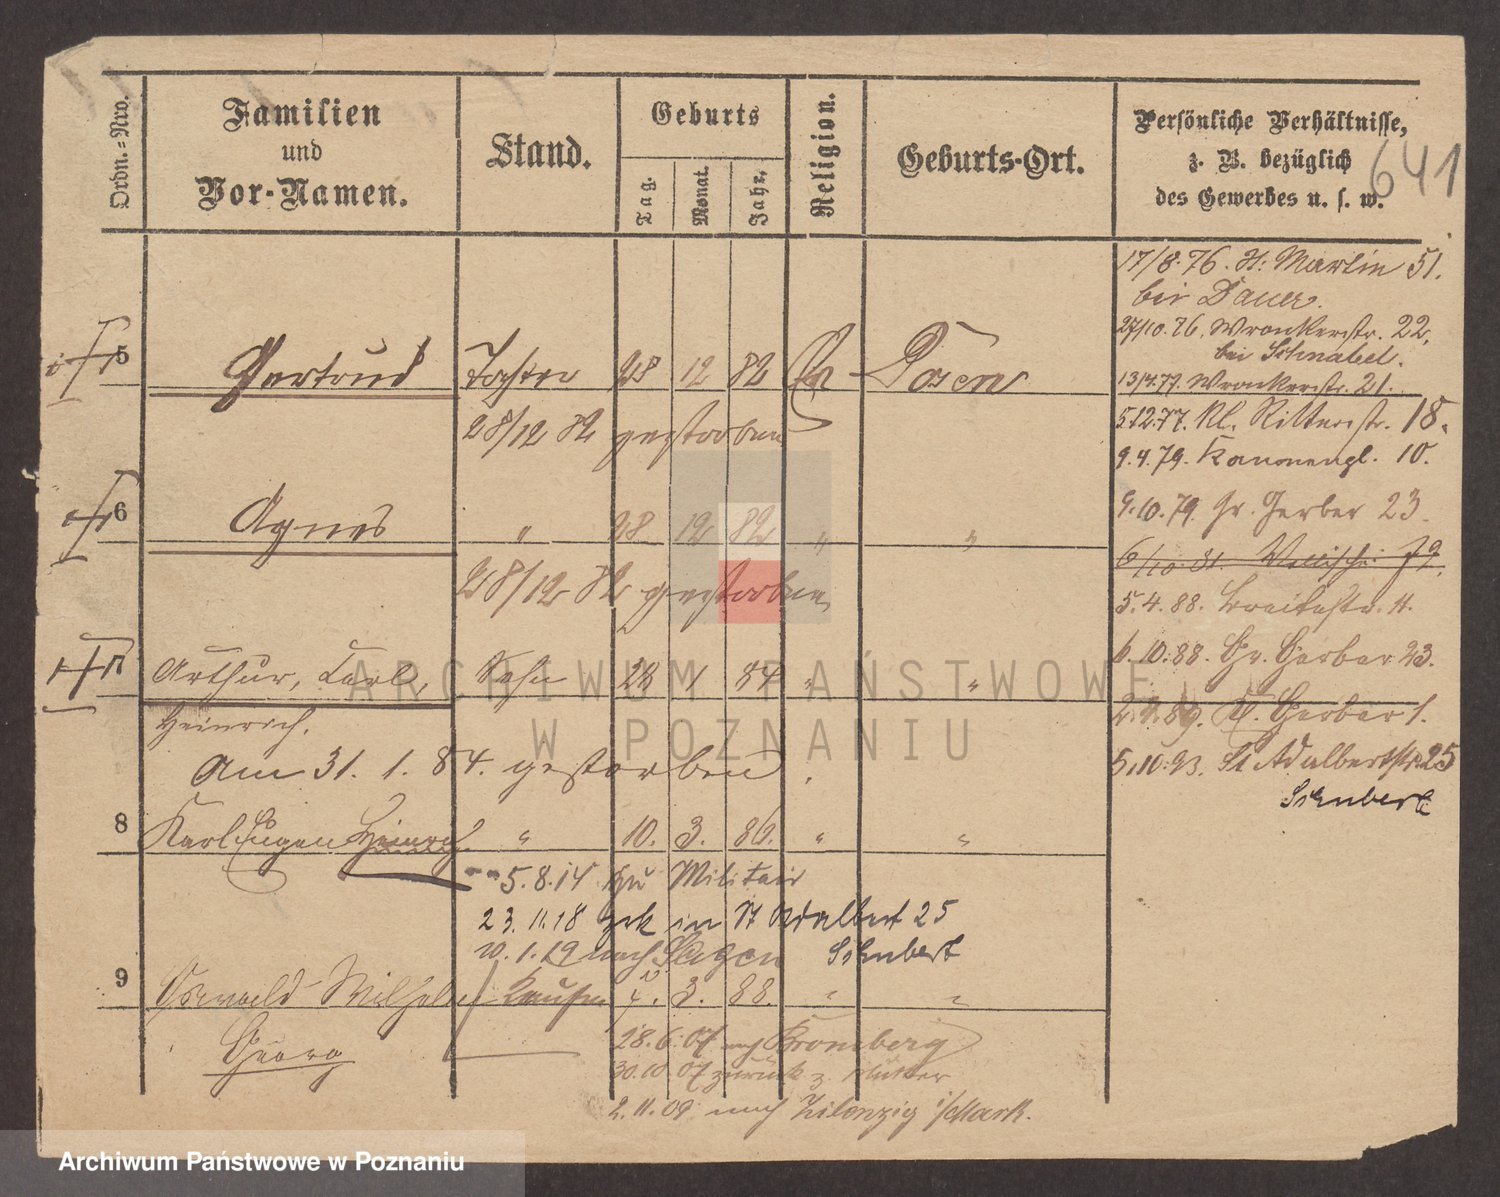 Ordn.=Nro.
Familien
und
Vor-Namen.
Stand.
Geburts
Tag.
Monat.
Jahr.
Religion.
Geburts-Ort.
Persönliche Verhältnisse,
z. B. bezüglich
des Gewerbes u. s. w.
641
17/8.76. St. Martin 51.
bei Dauer.
27/10.76. Wronkerstr. 22,
bei Schnabel.
13/4.77. Wronkerstr. 21.
5.12.77. Kl. Ritterstr. 18.
9.4.79. Kanonenpl. 10.
9.10.79. Gr. Gerber 23.
6/10 81. 79.
5.4.88. Breitestr. 11.
6.10.88. Gr. Gerber 23.
89. Kl. Gerber 1.
5.10.93. St Adalbertstr. 25
Schubert
5 Gertrud Tochter 28 12 82 Ev Posen
28/12 82 gestorben
6 Agnes " 28 12 82 " "
28/12 82 gestorben
7 Arthur, Carl, Sohn 28 1 84 " "
Heinrich.
Am 31. 1. 84. gestorben.
8 Karl Eugen Heinrich " 10. 3. 86. " "
5.8.14 zu Militair
23.11.18 zrk in St Adalbert 25
10.1.19 nach Schubert
9 Oswald Wilhelm 3. 88. " "
Georg
28.6.07 nach
30.10 07 zurück z. Mutter
2.11.09 nach Zilenzig i/Mark.
ARCHIWUM PAŃSTWOWE
W POZNANIU
Archiwum Państwowe w Poznaniu